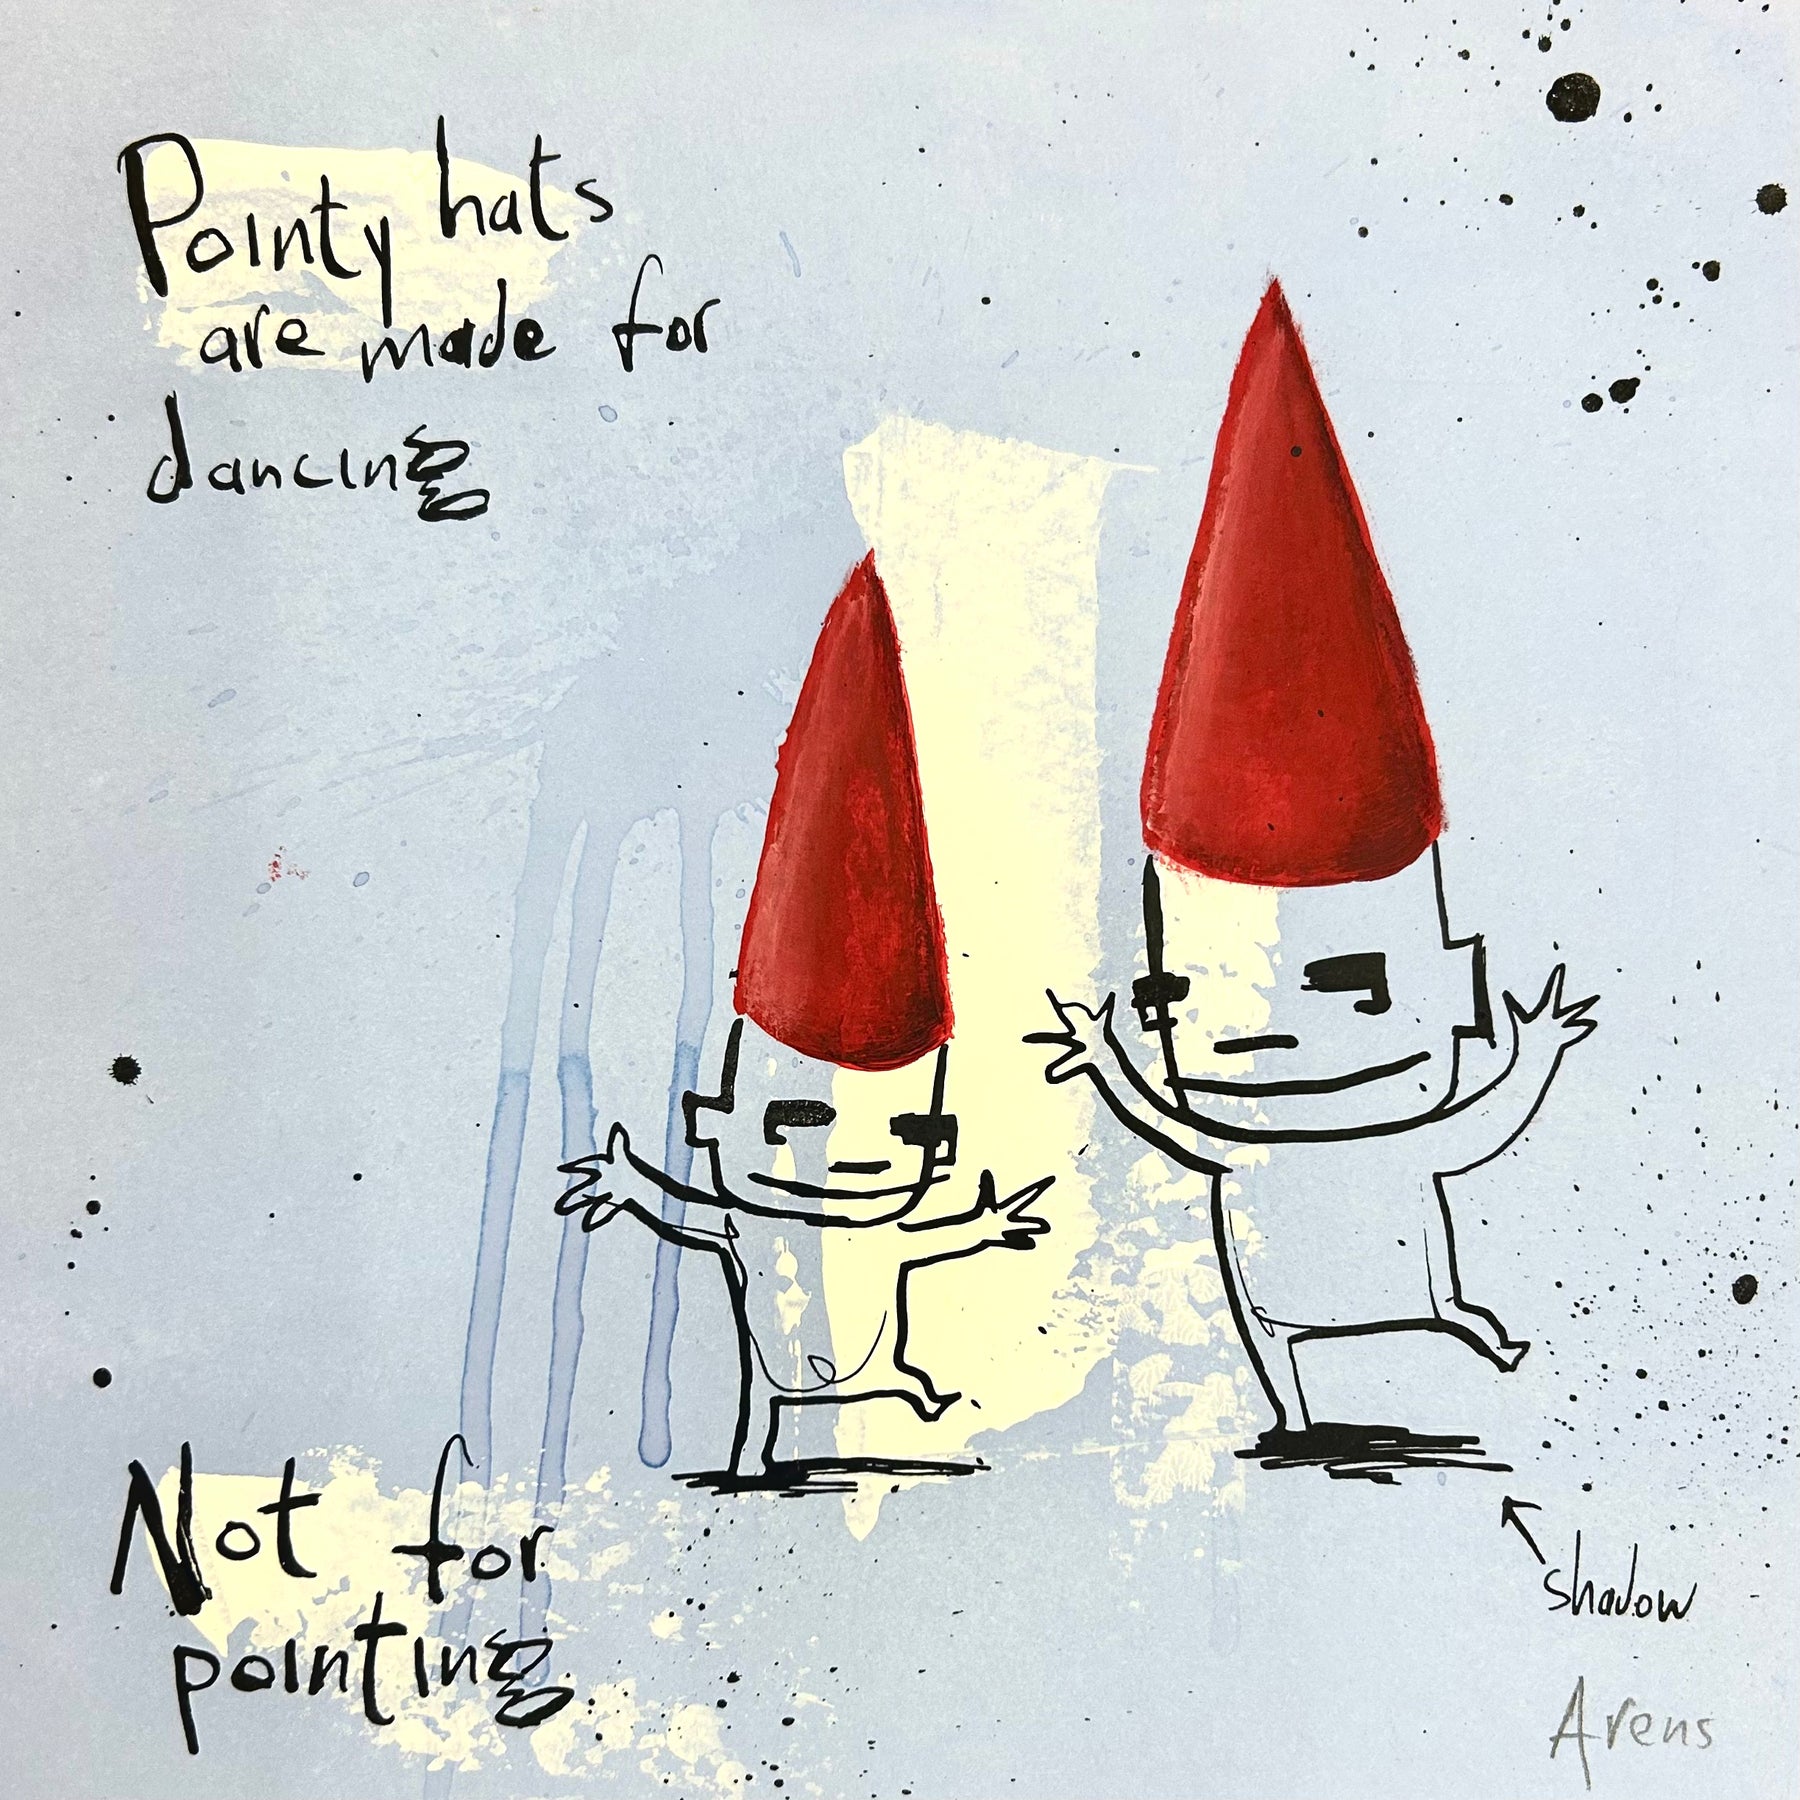 Pointy hats
are made for
dancing
Not for
pointing
shadow
Arens